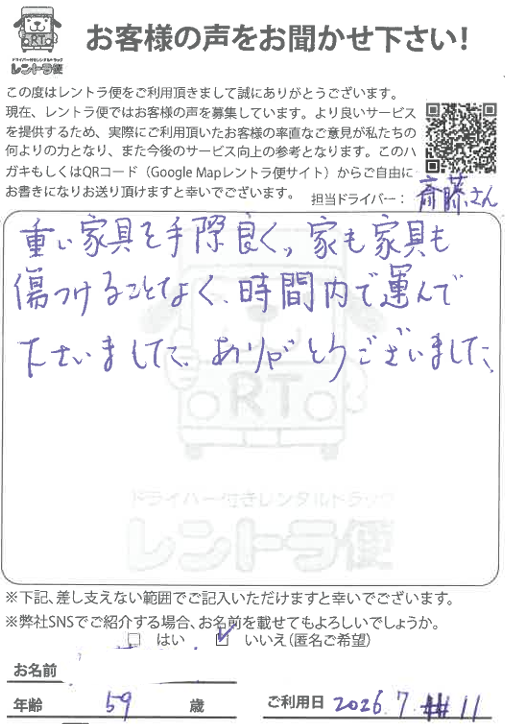 お客様の声をお聞かせ下さい!
RT
ドライバー付きレンタルトラック
レントラ便
この度はレントラ便をご利用頂きまして誠にありがとうございます。
現在、レントラ便ではお客様の声を募集しています。より良いサービス
を提供するため、実際にご利用頂いたお客様の率直なご意見が私たちの
何よりの力となり、また今後のサービス向上の参考となります。このハ
ガキもしくはQRコード（Google Mapレントラ便サイト）からご自由に
お書きになりお送り頂けますと幸いでございます。
担当ドライバー： 斎藤さん
重い家具を手際良く、家も家具も
傷つけることなく、時間内で運んで
下さいました。ありがとうございました。
RT
ドライバー付きレンタルトラック
レントラ便
※下記、差し支えない範囲でご記入いただけますと幸いでございます。
※弊社SNSでご紹介する場合、お名前を載せてもよろしいでしょうか。
□ はい ☑ いいえ（匿名ご希望）
お名前
年齢 59 歳 ご利用日 2026.7 11